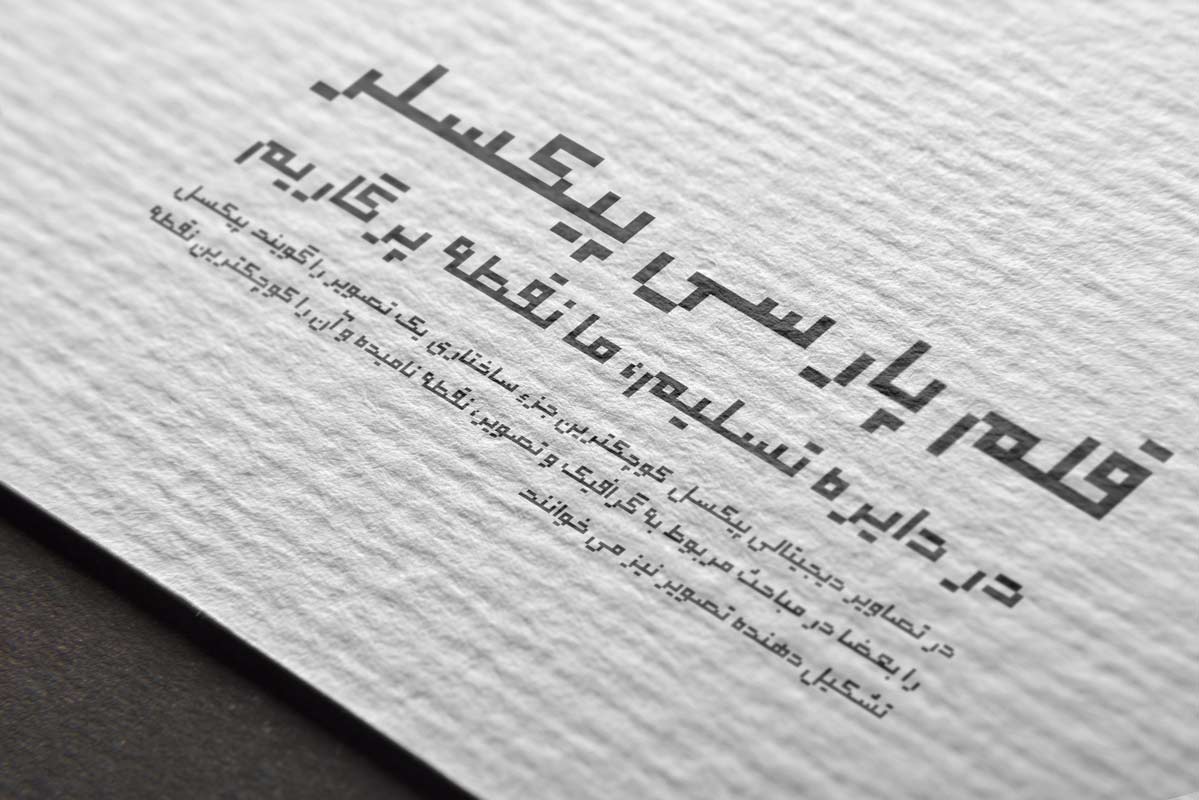 قلم پارسی پیکسلر
در دایره تسلیم؛ ما نقطه پرگاریم
در تصاویر دیجیتالی پیکسل کوچکترین جزء ساختاری یک تصویر را گویند پیکسل
را بعضا در مباحث مربوط به گرافیک و تصویر، نقطه نامیده و آن را کوچکترین نقطه
تشکیل دهنده تصویر نیز می خوانند